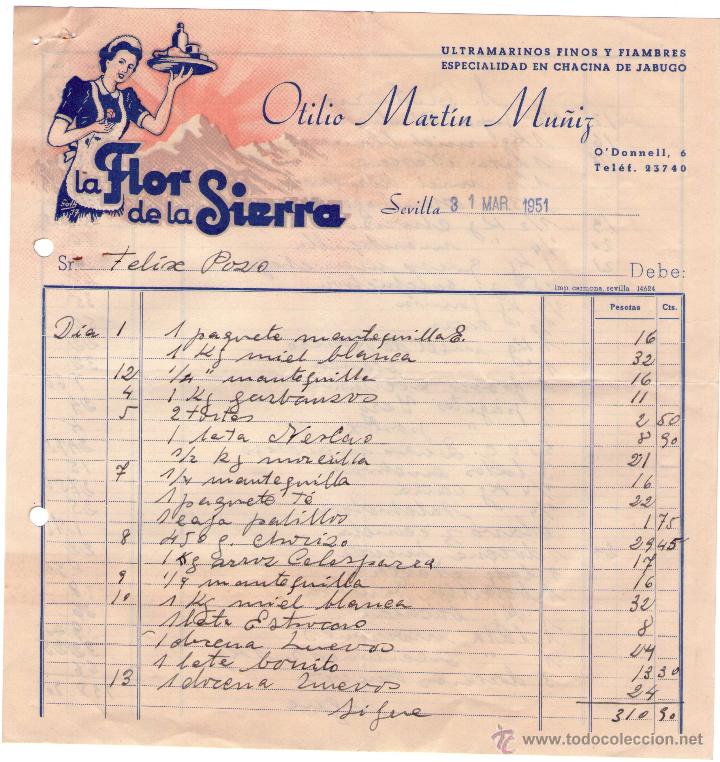 ULTRAMARINOS FINOS Y FIAMBRES
ESPECIALIDAD EN CHACINA DE JABUGO
Otilio Martín Muñiz
O'Donnell, 6
Teléf. 23740
La Flor
de la Sierra
Sevilla 31 MAR. 1951
Sr. Felix Pozo Debe:
Imp. carmona, sevilla 14624
Pesetas Cts.
Dia 1 1 paquete mantequilla E. 16
1 Kg miel blanca 32
12 1/4 " mantequilla 16
4 1 Kg garbansos 11
5 2 tortas 2 50
1 lata Nescao 8 90
1/2 kg morcilla 21
7 1/4 mantequilla 16
1 paquete té 22
1 caja palillos 1 75
8 450 g. choriso 29 45
1 Kg arros Calasparra 17
9 1/4 mantequilla 16
10 1 Kg miel blanca 32
1 lata 8
1 docena huevos 24
1 lata bonito 13 30
13 1 docena huevos 24
Sigue 310 90
www.todocoleccion.net